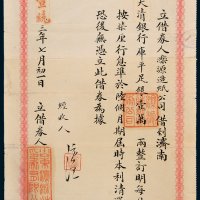 立借券人灤源造紙公司借到濟南
大清銀行庫平足銀壹萬兩整訂明每
按柒厘行息準於陸個月期屆時本利清還
恐後無憑立此借券為據
經收人
立借券人
宣統二年七月初一日